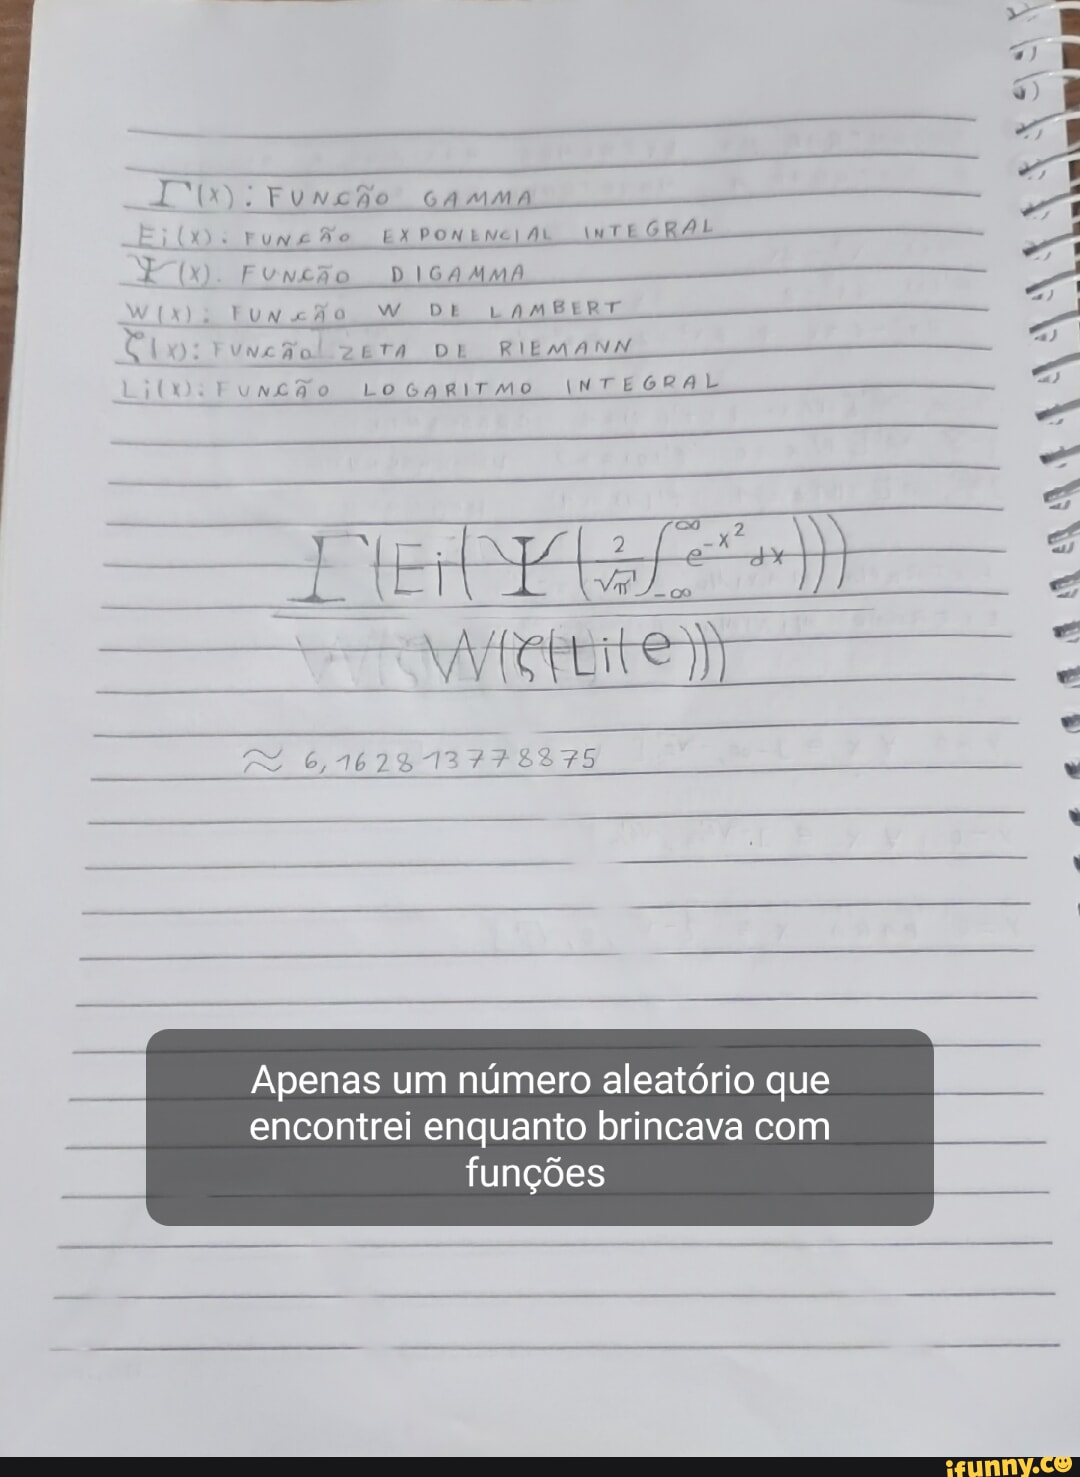 Γ(x): FUNCÃO GAMMA
Ei(x): FUNCÃO EXPONENCIAL INTEGRAL
Ψ(x): FUNCÃO DIGAMMA
W(x): FUNCÃO W DE LAMBERT
ζ(x): FUNCÃO ZETA DE RIEMANN
Li(x): FUNCÃO LOGARITMO INTEGRAL
Γ(Ei(Ψ(2/√π ∫_{-∞}^{∞} e^{-x^2} dx)))
W(ζ(Li(e)))
≈ 6,162813778875
Apenas um número aleatório que
encontrei enquanto brincava com
funções
ifunny.co